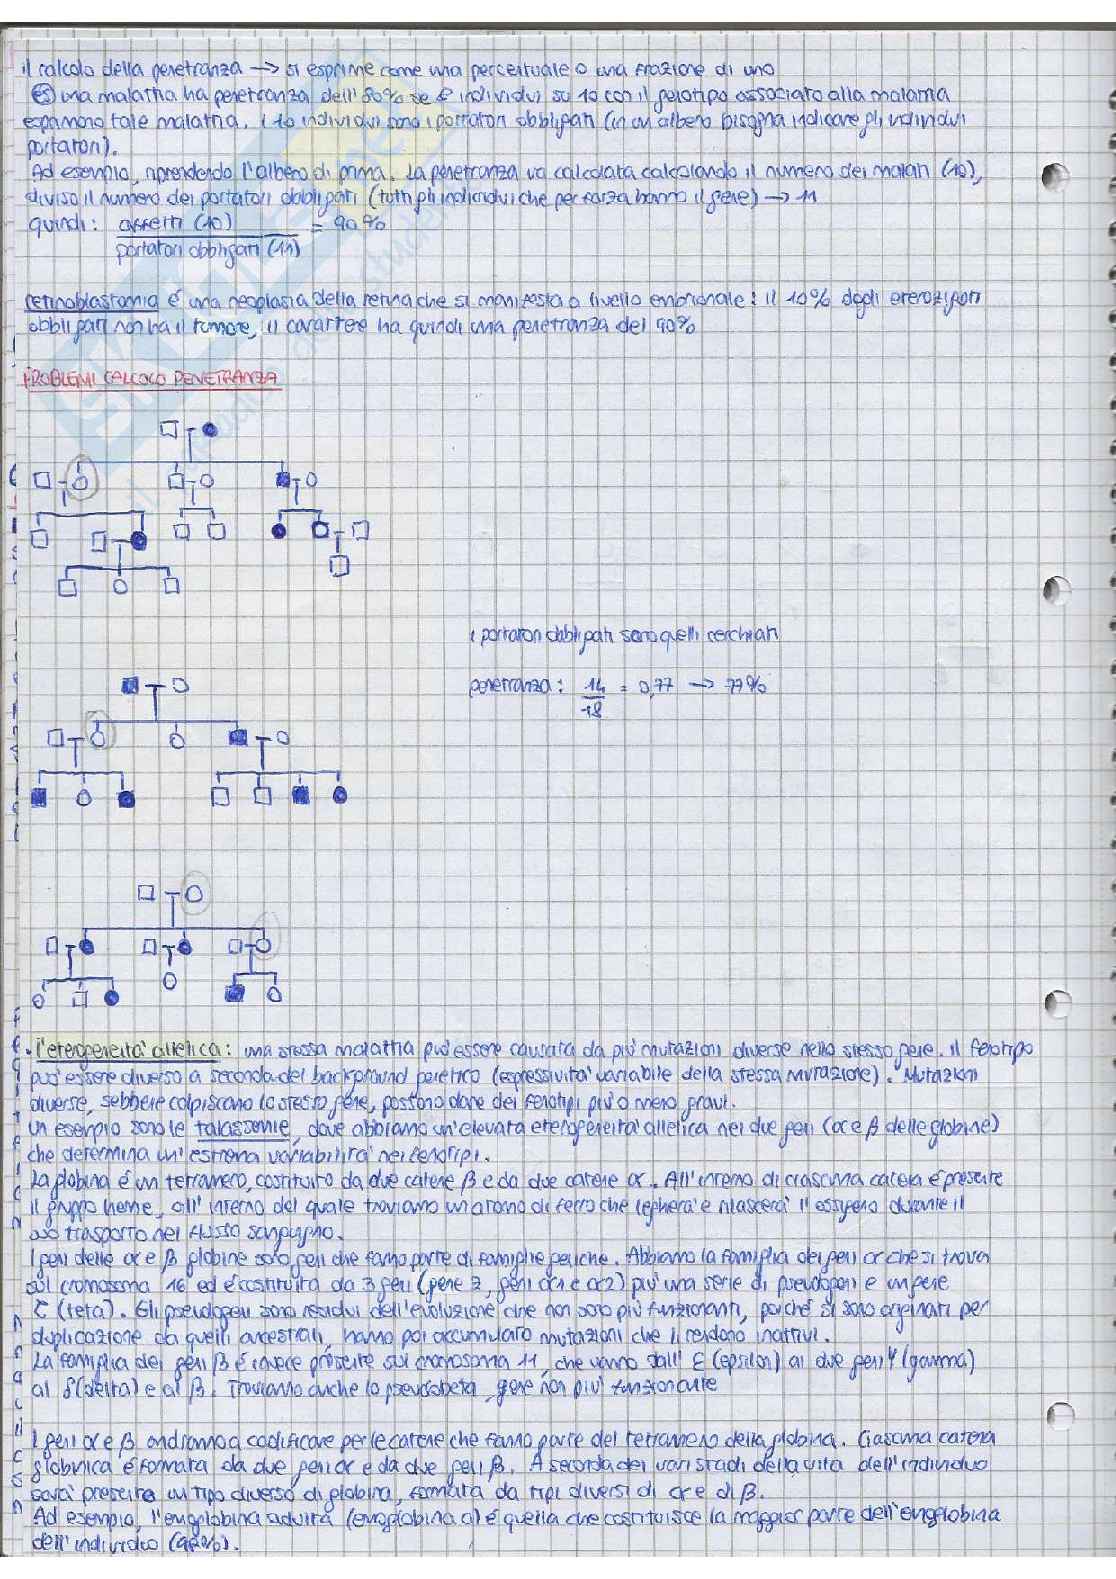 il calcolo della penetranza → si esprime come una percentuale o una frazione di uno
(es) una malattia ha penetranza dell'80% se 8 individui su 10 con il genotipo associato alla malattia
esprimono tale malattia. i 10 individui sono i portatori obbligati (in un albero bisogna indicare gli individui
portatori).
Ad esempio, riprendendo l'albero di prima. La penetranza va calcolata calcolando il numero dei malati (10),
diviso il numero dei portatori obbligati (tutti gli individui che per forza hanno il gene) → 11
quindi: affetti (10) / portatori obbligati (11) = 90%
retinoblastomia è una neoplasia della retina che si manifesta a livello embrionale: il 10% degli eterozigoti
obbligati non ha il tumore, il carattere ha quindi una penetranza del 90%
PROBLEMI CALCOLO PENETRANZA
i portatori obbligati sono quelli cerchiati
penetranza: 14/18 = 0,77 → 77%
• l'eterogeneità allelica: una stessa malattia può essere causata da più mutazioni diverse nello stesso gene. Il fenotipo
può essere diverso a seconda del background genetico (espressività variabile della stessa mutazione). Mutazioni
diverse, sebbene colpiscano lo stesso gene, possono dare dei fenotipi più o meno gravi.
Un esempio sono le talassemie, dove abbiamo un'elevata eterogeneità allelica nei due geni (α e β delle globine)
che determina un'estrema variabilità nei fenotipi.
La globina è un tetramero, costituito da due catene β e da due catene α. All'interno di ciascuna catena è presente
il gruppo heme, all'interno del quale troviamo un atomo di ferro che legherà e rilascerà l'ossigeno durante il
suo trasporto nel flusso sanguigno.
I geni delle α e β globine sono geni che fanno parte di famiglie geniche. Abbiamo la famiglia dei geni α che si trova
sul cromosoma 16 ed è costituita da 3 geni (gene 2, geni α1 e α2) più una serie di pseudogeni e un gene
ζ (zeta). Gli pseudogeni sono residui dell'evoluzione che non sono più funzionanti, poiché si sono originati per
duplicazione da quelli ancestrali, hanno poi accumulato mutazioni che li rendono inattivi.
La famiglia dei geni β è invece presente sul cromosoma 11, che vanno dall'ε (epsilon) ai due geni γ (gamma)
al δ (delta) e al β. Troviamo anche lo pseudobeta, gene non più funzionante
I geni α e β andranno a codificare per le catene che fanno parte del tetramero della globina. Ciascuna catena
globinica è formata da due geni α e da due geni β. A seconda dei vari stadi della vita dell'individuo
sarà presente un tipo diverso di globina, formata da tipi diversi di α e di β.
Ad esempio, l'emoglobina adulta (emoglobina a) è quella che costituisce la maggior parte dell'emoglobina
dell'individuo (98%).